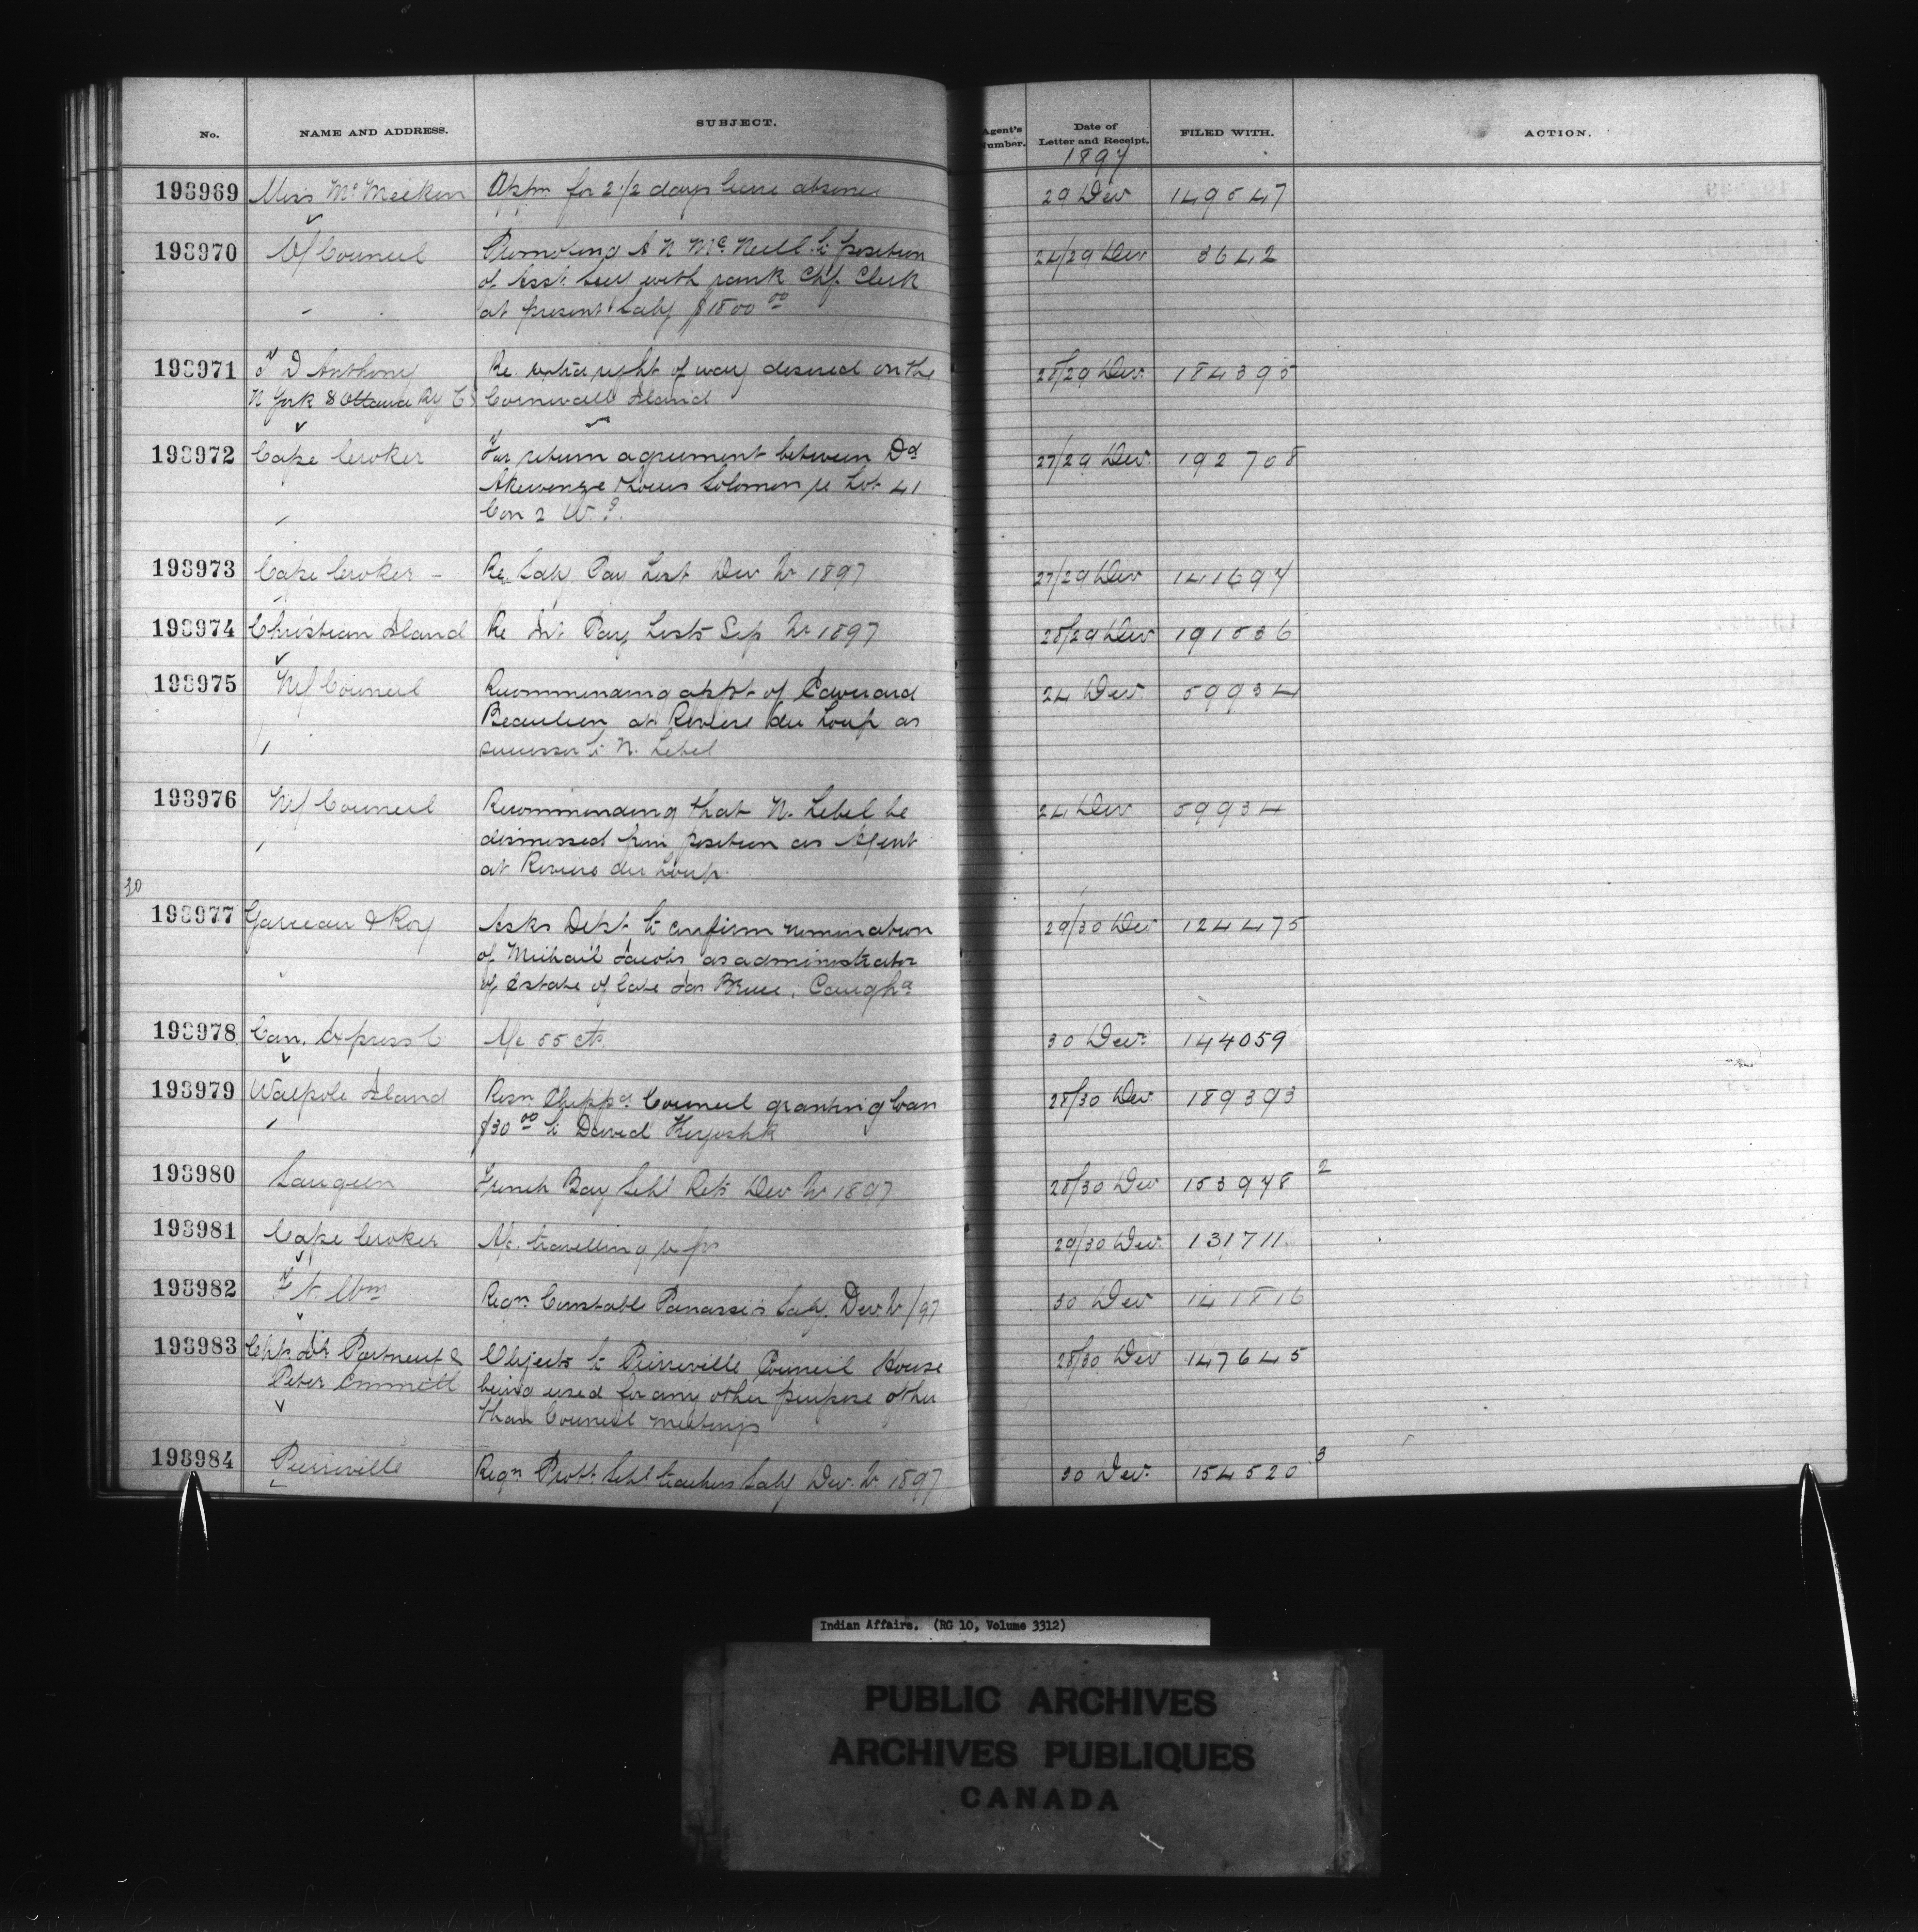 No. NAME AND ADDRESS. SUBJECT. Agent's Number. Date of Letter and Receipt. FILED WITH. ACTION.
1897
193969 Miss McMeekin Appn for 2 1/2 days leave absence 29 Dec 149547
193970 O/Council Promoting A N McNeill to position 24/29 Dec 3642
of Asst Secy with rank Chf. Clerk
at present Saly $1800 00
193971 D Anthony Re. extra right of way desired on the 28/29 Dec. 184395
N York & Ottawa Ry Co Cornwall Island
193972 Cape Croker For return agreement between Dd 27/29 Dec. 192708
Akewenze & Louis Solomon re Lot 41
Con 2 W.
193973 Cape Croker - Re Saly Pay List Dec Qr 1897 27/29 Dec 141697
193974 Christian Island Re Int Pay Lists Sep Qr 1897 28/29 Dec 191536
193975 M/Council Recommending appt of Edward 24 Dec. 59934
Beaulieu at Riviere du Loup as
successor to N. Lebel
193976 M/Council Recommending that N. Lebel be 24 Dec 59934
dismissed from position as Agent
at Riviere du Loup.
30
193977 Garceau & Roy Asks Dept to confirm nomination 29/30 Dec 124475
of Michail Jacobs as administrator
of Estate of late Jas Brue, Caugha
193978 Can. Express Co A/c 55 cts. 30 Dec. 144059
193979 Walpole Island Resn Chippa Council granting loan 28/30 Dec 189393
$30 00 to David Keyoshk
193980 Saugeen French Bay Schl Rets Dec Qr 1897 28/30 Dec 153948 2
193981 Cape Croker A/c. travelling exps 29/30 Dec. 131711
193982 Ft. Wm Reqn. Constable Panassie's Saly. Dec. Qr /97 30 Dec 141816
193983 Portneuf & Objects to Pierreville Council House 28/30 Dec 147645
Peter Emmett being used for any other purpose other
than Council meetings
193984 Pierreville Reqn Prott. Schl teachers Saly Dec. Qr. 1897 30 Dec. 154520 3
Indian Affairs. (RG 10, Volume 3312)
PUBLIC ARCHIVES
ARCHIVES PUBLIQUES
CANADA